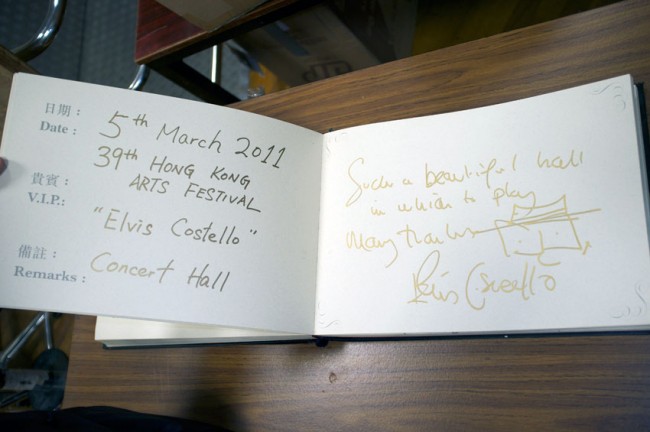 日期：
Date :
5th March 2011
39th HONG KONG
ARTS FESTIVAL
貴賓：
V.I.P.:
"Elvis Costello"
備註：
Remarks :
Concert Hall
Such a beautiful hall
in which to play
Many thanks
Elvis Costello